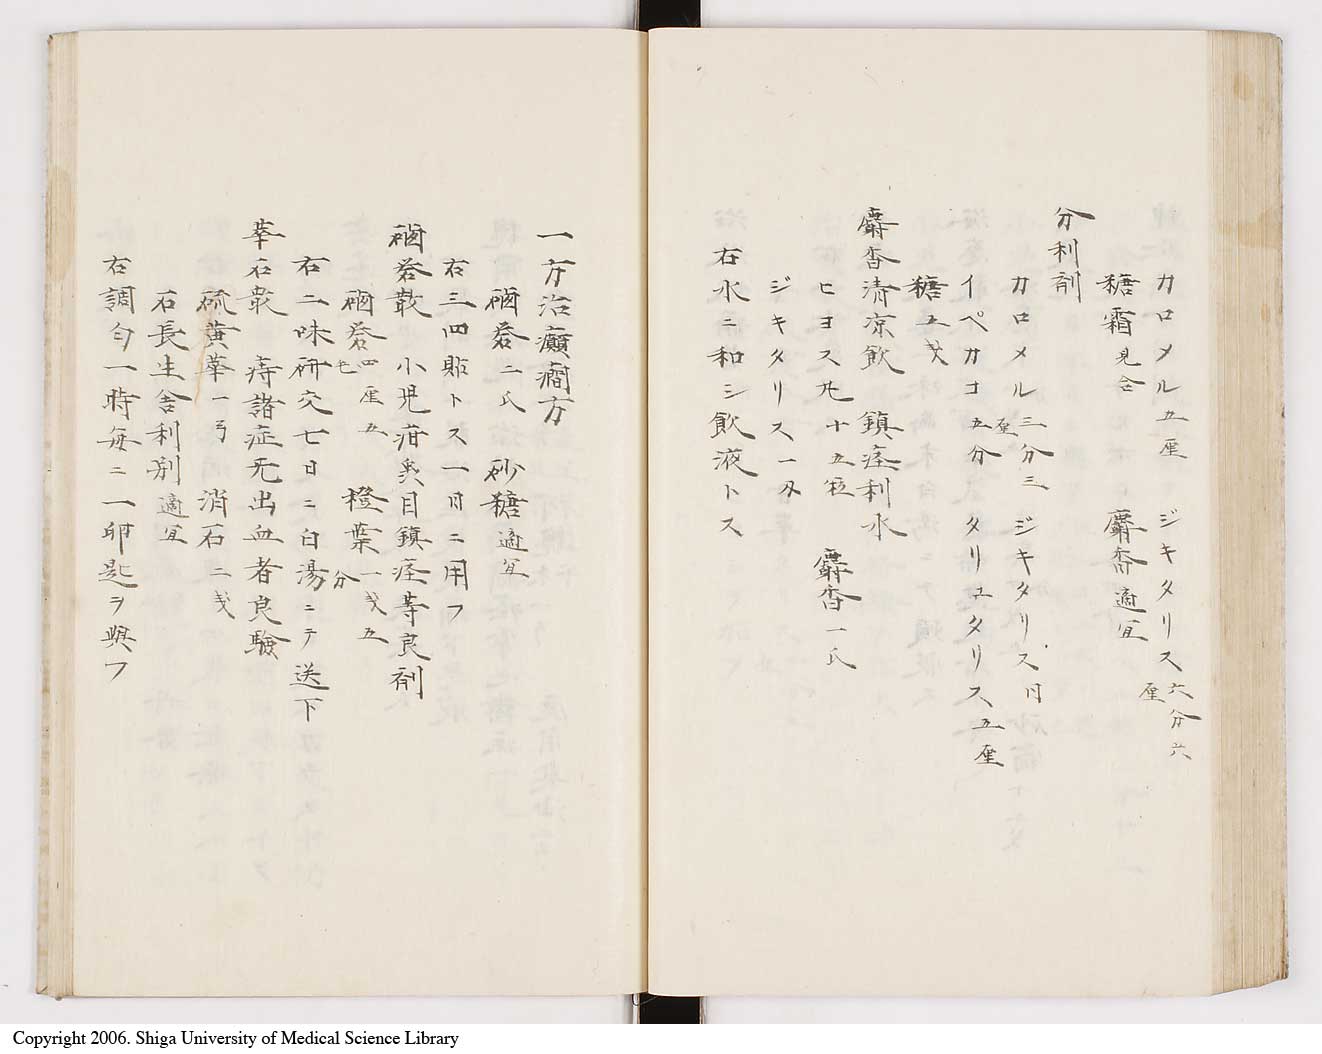 カロメル五厘 ジキタリス六分六厘
糖霜見合 麝香適宜
分利剤
カロメル三分三厘 ジキタリス
イペカコ五分 タリユタリス五厘
糖五戔
麝香清凉飲 鎮痙利水
ヒヨス九十五粒 麝香一氏
ジキタリス一
右水ニ和シ飲液トス
一方治癲癇方
砂糖適宜
右三四貼トス一日ニ用フ
小児疳 目鎮痙等良剤
四厘五毛 橙葉一戔五分
右二味研交七日ニ白湯ニテ送下
華石散 痔諸症无出血者良驗
硫黄華一 消石二戔
石長生舎利別適宜
右調匀一時毎ニ一卵匙ヲ與フ
Copyright 2006. Shiga University of Medical Science Library